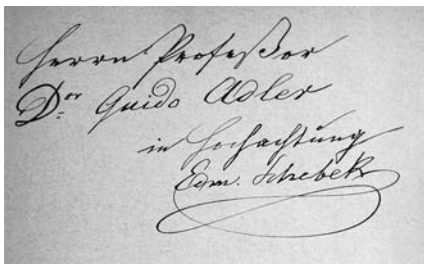 Herrn Profeßor
Dor Guido Adler
in Hochachtung
Edm. Schebek